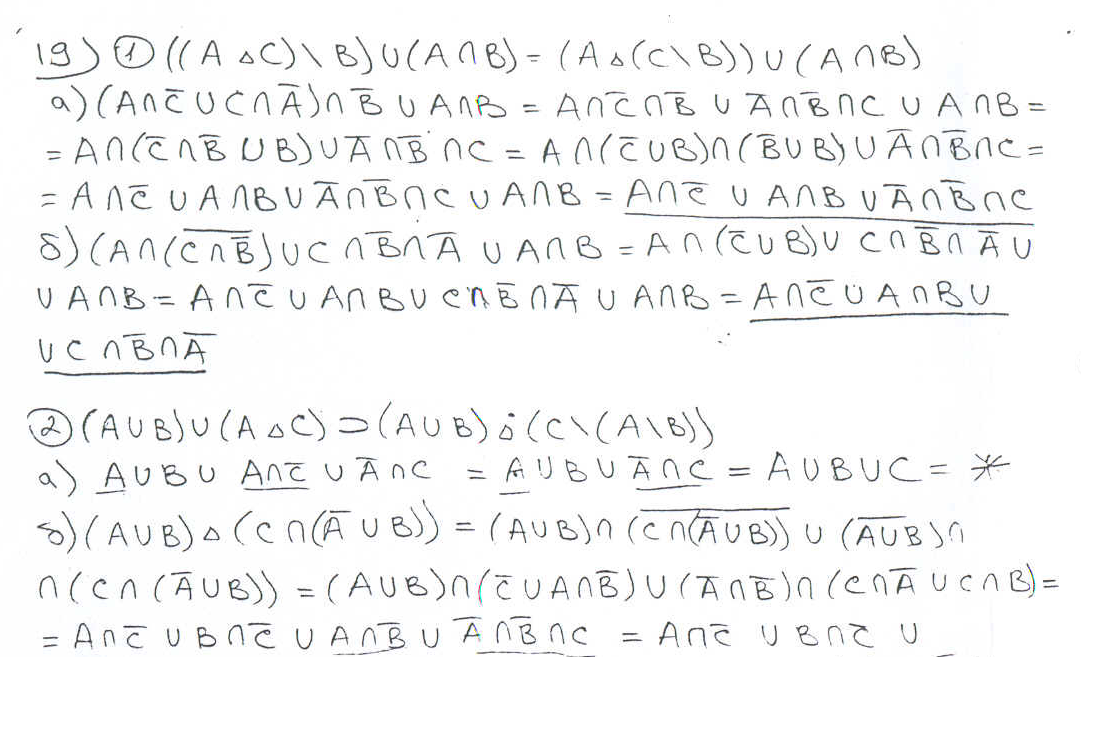 19) ① ((A △ C) \ B) ∪ (A ∩ B) = (A △ (C \ B)) ∪ (A ∩ B)
а) (A ∩ C̅ ∪ C ∩ A̅) ∩ B̅ ∪ A ∩ B = A ∩ C̅ ∩ B̅ ∪ A̅ ∩ B̅ ∩ C ∪ A ∩ B =
= A ∩ (C̅ ∩ B̅ ∪ B) ∪ A̅ ∩ B̅ ∩ C = A ∩ (C̅ ∪ B) ∩ (B̅ ∪ B) ∪ A̅ ∩ B̅ ∩ C =
= A ∩ C̅ ∪ A ∩ B ∪ A̅ ∩ B̅ ∩ C ∪ A ∩ B = A ∩ C̅ ∪ A ∩ B ∪ A̅ ∩ B̅ ∩ C
б) (A ∩ (\overline{C ∩ B̅}) ∪ C ∩ B̅ ∩ A̅ ∪ A ∩ B = A ∩ (C̅ ∪ B) ∪ C ∩ B̅ ∩ A̅ ∪
∪ A ∩ B = A ∩ C̅ ∪ A ∩ B ∪ C ∩ B̅ ∩ A̅ ∪ A ∩ B = A ∩ C̅ ∪ A ∩ B ∪
∪ C ∩ B̅ ∩ A̅
② (A ∪ B) ∪ (A △ C) ⊃ (A ∪ B) ÷ (C \ (A \ B))
а) A ∪ B ∪ A ∩ C̅ ∪ A̅ ∩ C = A ∪ B ∪ A̅ ∩ C = A ∪ B ∪ C = *
б) (A ∪ B) △ (C ∩ (A̅ ∪ B)) = (A ∪ B) ∩ (\overline{C ∩ (A̅ ∪ B)}) ∪ (\overline{A ∪ B}) ∩
∩ (C ∩ (A̅ ∪ B)) = (A ∪ B) ∩ (C̅ ∪ A ∩ B̅) ∪ (A̅ ∩ B̅) ∩ (C ∩ A̅ ∪ C ∩ B) =
= A ∩ C̅ ∪ B ∩ C̅ ∪ A ∩ B̅ ∪ A̅ ∩ B̅ ∩ C = A ∩ C̅ ∪ B ∩ C̅ ∪